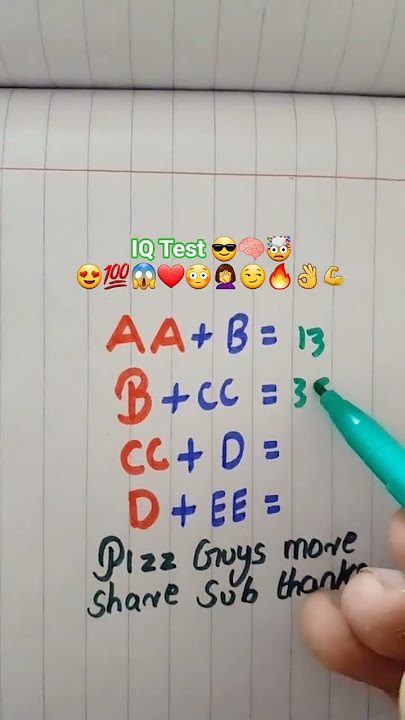 IQ Test 😎🧠🤯
😍💯😱❤️😳🤦‍♀️😏🔥👌💪
AA + B = 13
B + CC = 35
CC + D =
D + EE =
Plzz Guys more
Share Sub thanks